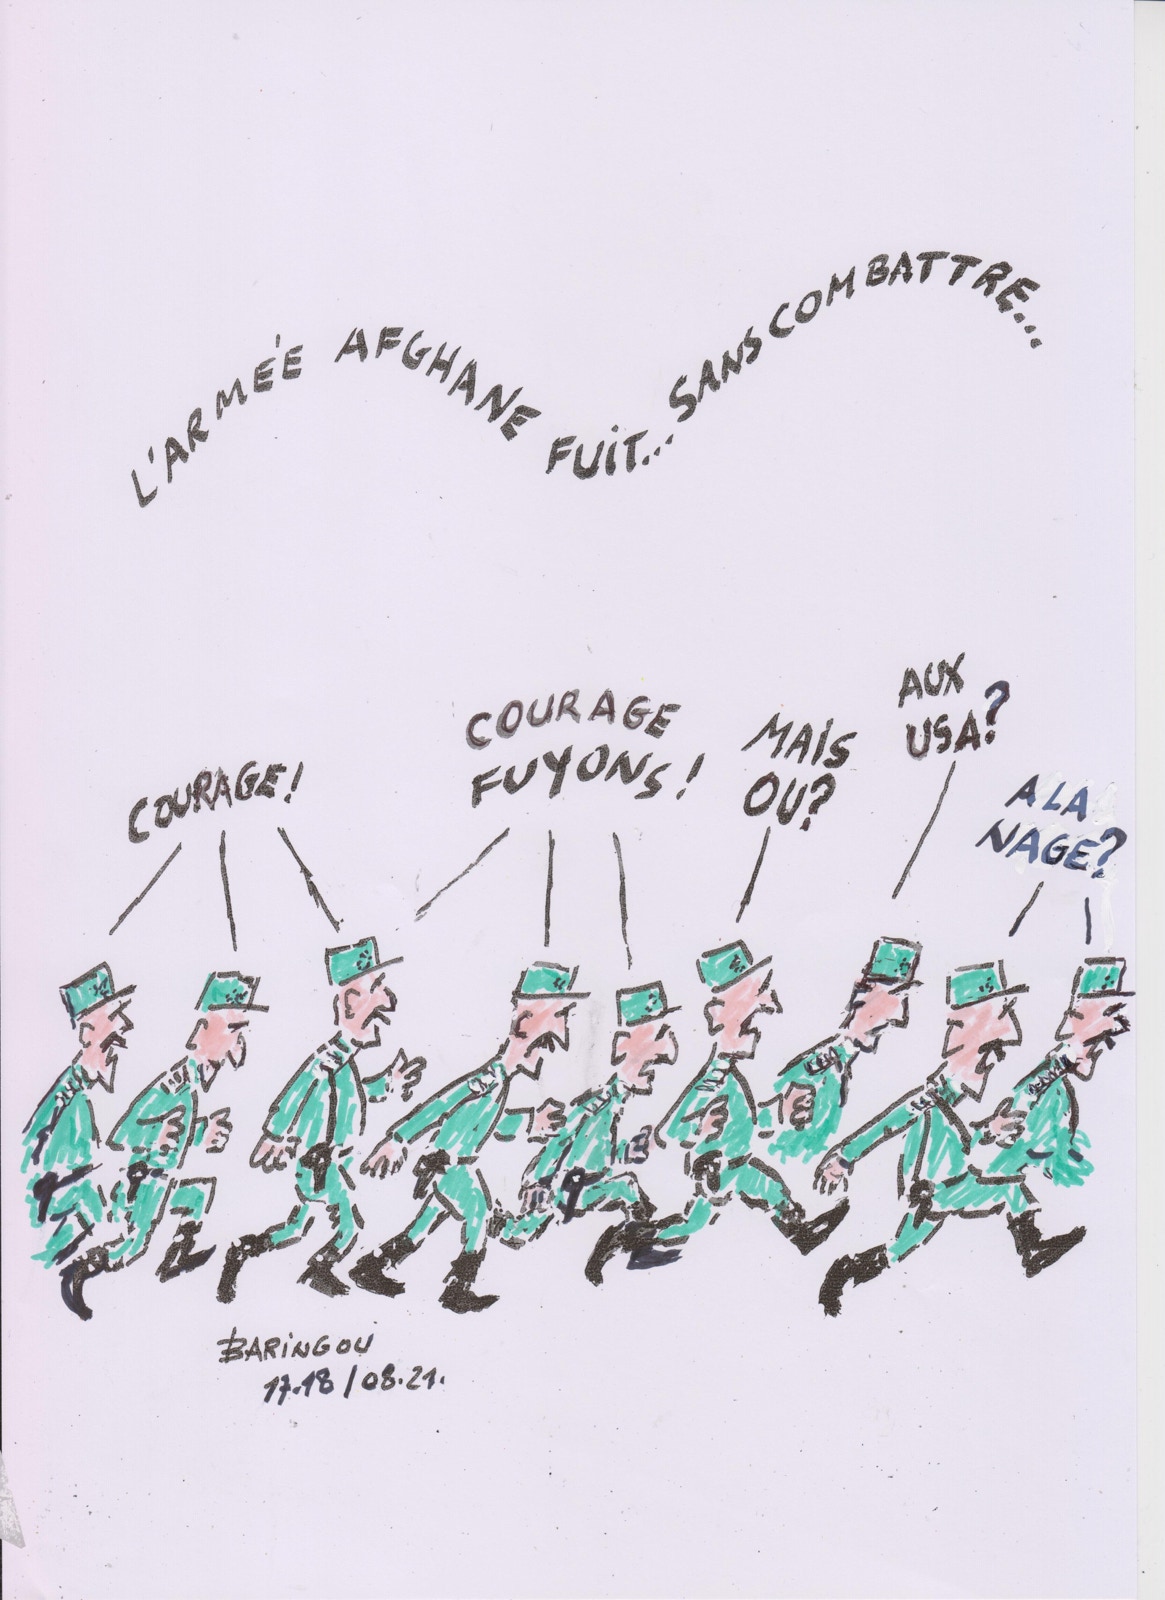 L'ARMÉE AFGHANE FUIT... SANS COMBATTRE...
COURAGE!
COURAGE
FUYONS!
MAIS
OU?
AUX
USA?
A LA
NAGE?
BARINGOU
17.18/08.21.